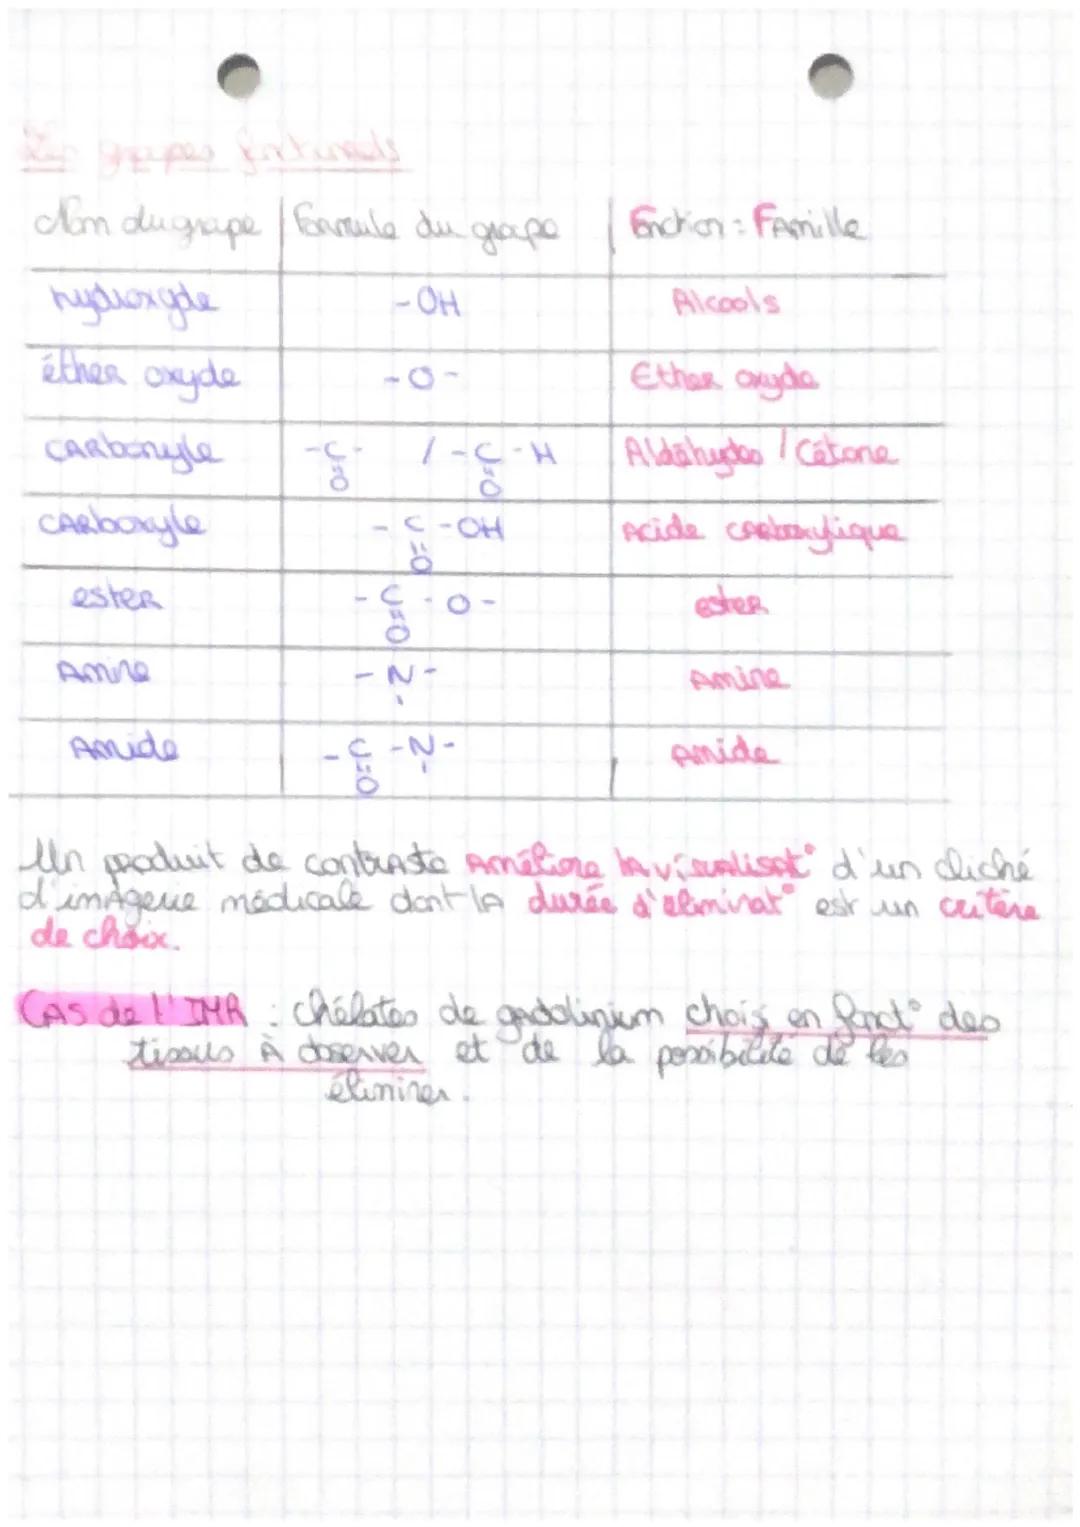 Les groupes fonctionnels
Nom du groupe | Formule du groupe | Fonction = Famille
hydroxyde | -OH | Alcools
éther oxyde | -O- | Ether oxyde
CARbonyle | -C- / -C-H | Aldéhydes / Cétone
O O
CARboxyle | -C-OH | Acide carboxylique
O
ester | -C-O- | ester
O
Amine | -N- | Amine
Amide | -C-N- | Amide
O
Un produit de contraste Améliore la visualisat° d'un cliché
d'imagerie médicale dont la durée d'éliminat° est un critère
de choix.
CAS de l'IMR : chélates de gadolinium choisi en fonct° des
tissus À observer et de la possibilité de les
éliminer.